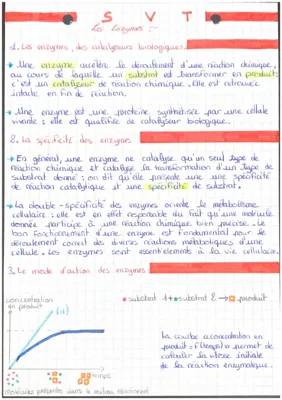 S V T
Les Enzymes :-
1. Les enzymes, des catalyseurs biologiques.
→ Une enzyme accélère le déroulement d'une réaction chimique,
au cours de laquelle un substrat est transformé en produit
c'est un catalyseur de réaction chimique. Elle est retrouvée
intacte en fin de réaction.
→ Une enzyme est une protéine synthétisée par une cellule
vivante : elle est qualifiée de catalyseur biologique.
2. La spécificité des enzymes
→ En général, une enzyme ne catalyse qu'un seul type de
réaction chimique et catalyse la transformation d'un type de
substrat donné : on dit qu'elle présente une spécificité
de réaction catalytique et une spécificité de substrat.
→ La double-spécificité des enzymes oriente le métabolisme
cellulaire : elle est en effet responsable du fait qu'une molécule
donnée participe à une réaction chimique bien précise. Le
bon fonctionnement d'une enzyme est fondamental pour le
déroulement correct des diverses réactions métaboliques d'une
cellule. Les enzymes sont essentielles à la vie cellulaire.
3. Le mode d'action des enzymes
concentration
en produit
substrat 1 + substrat 2 → produit
temps
molécules présentes dans le milieu réactionnel
La courbe concentration en
produit = f(temps) permet de
calculer la vitesse initiale
de la réaction enzymatique.